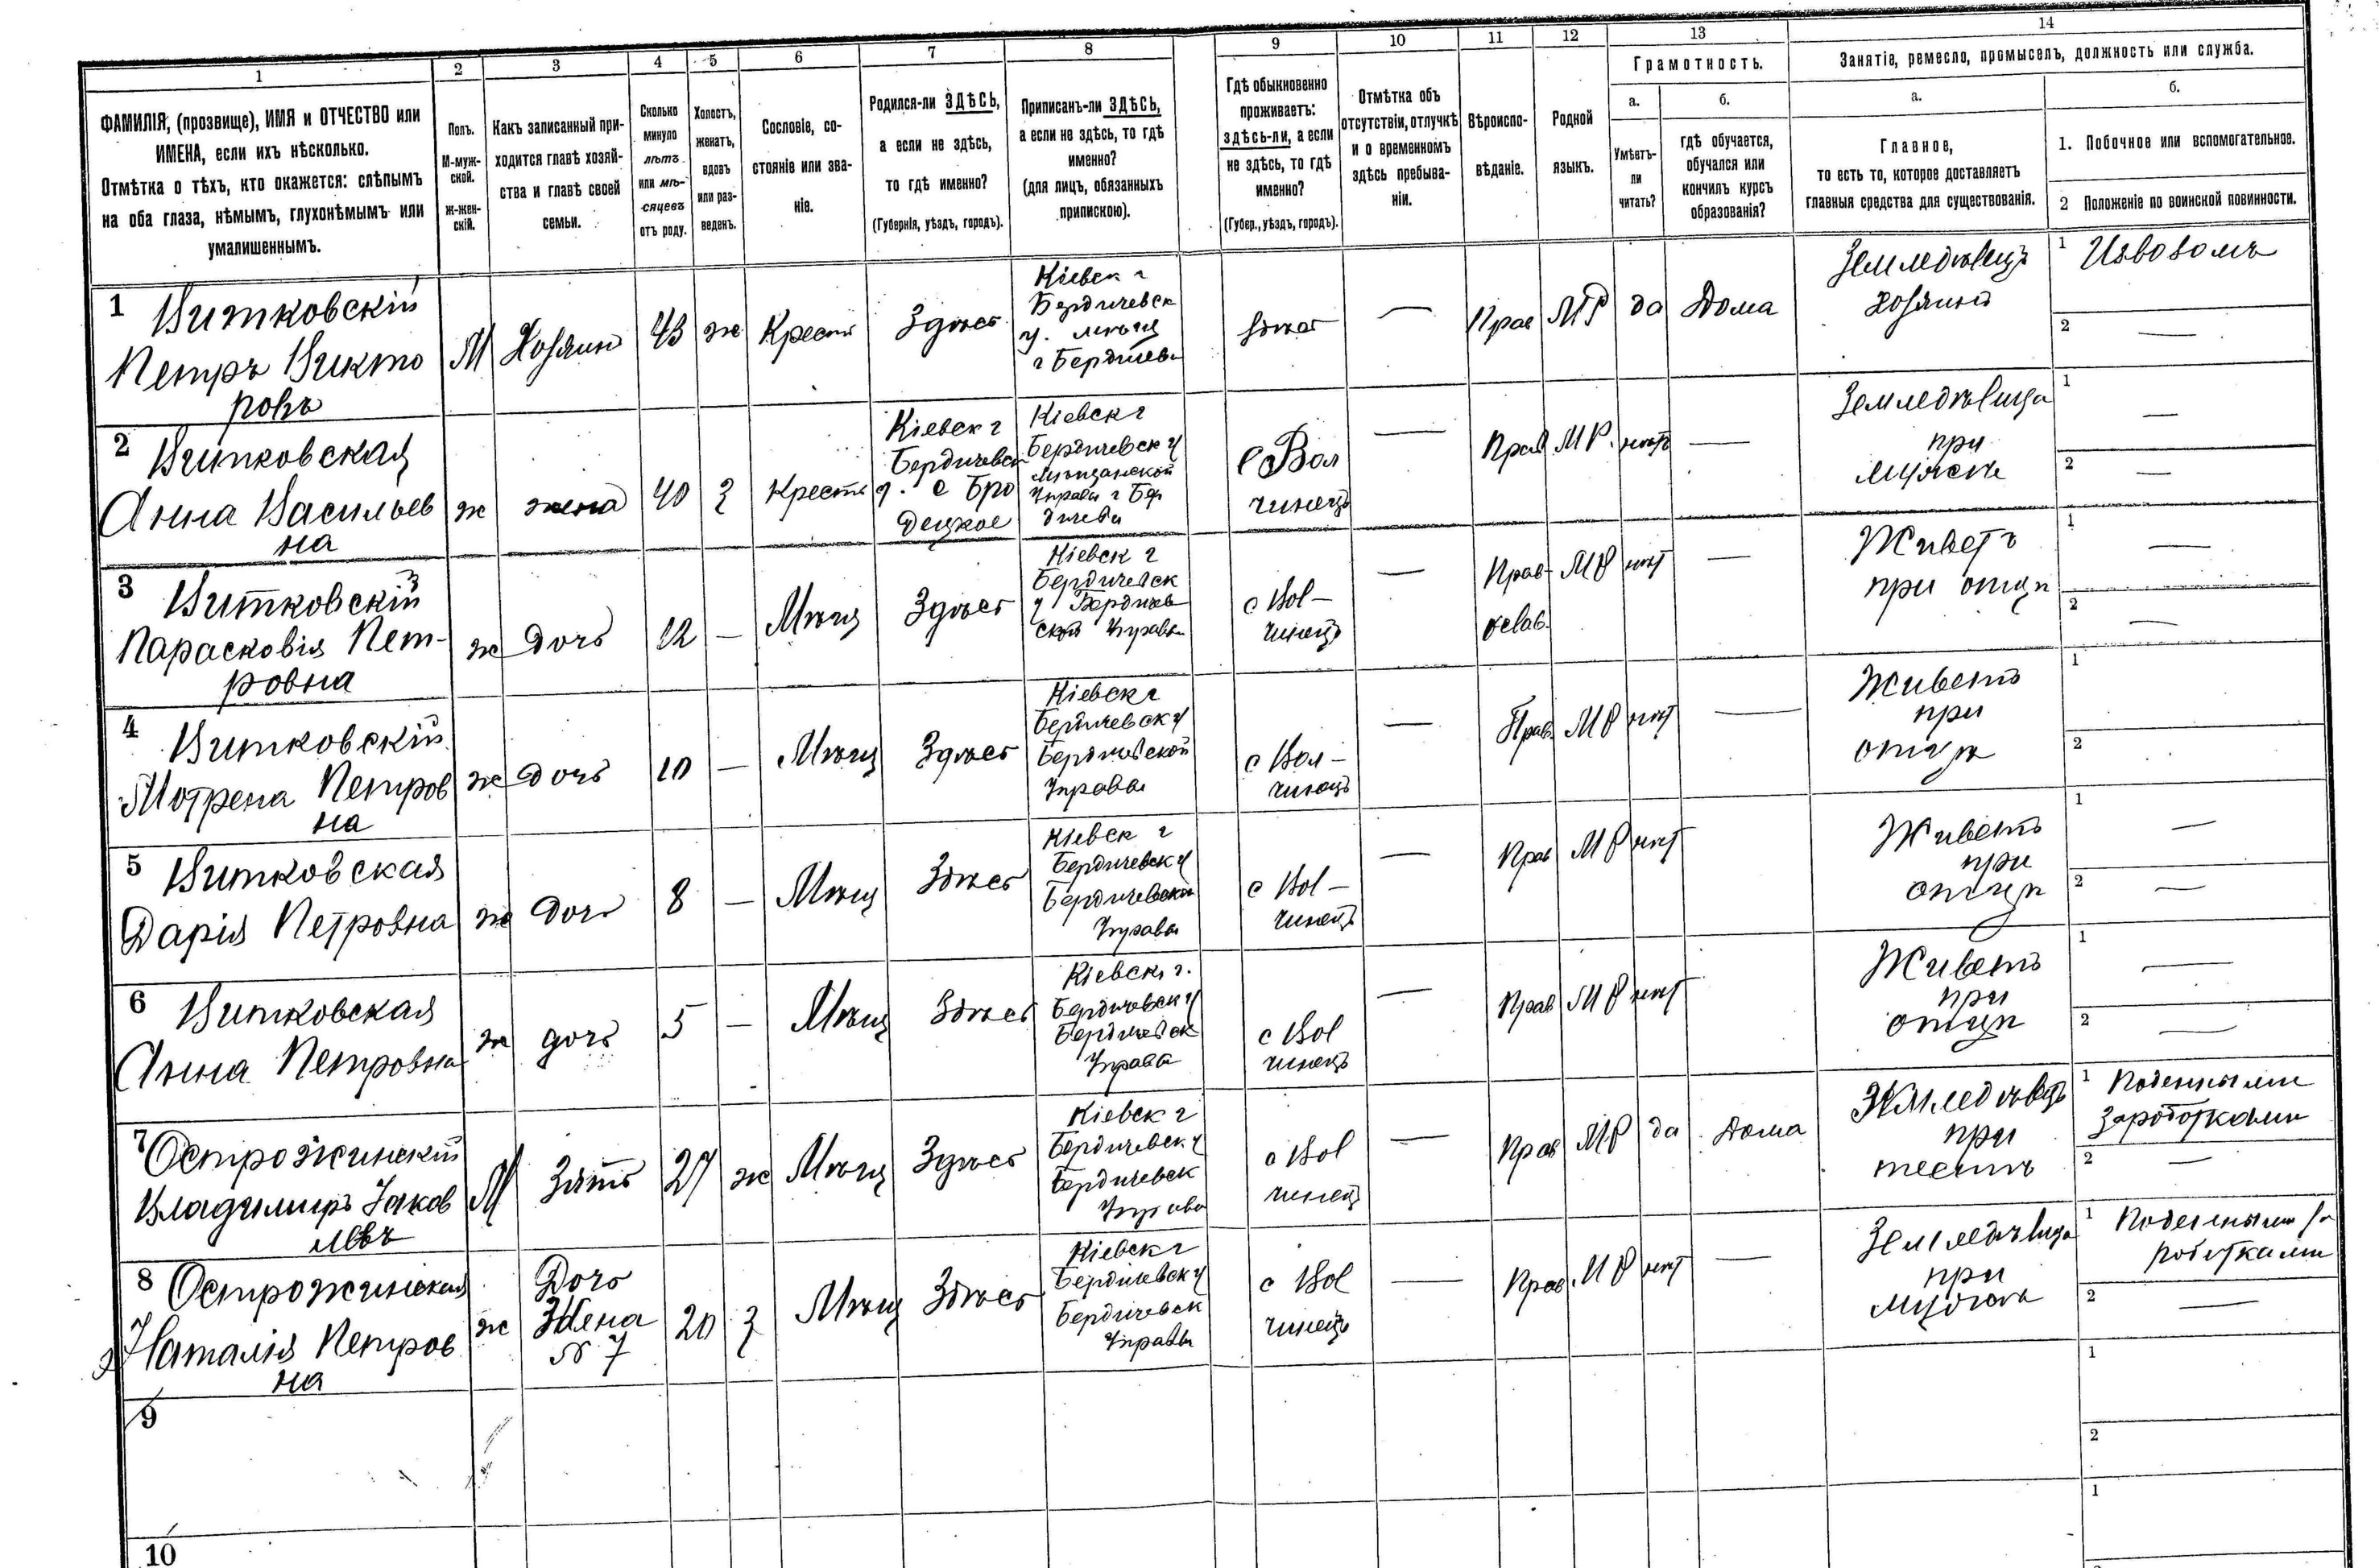 1
2
3
4
5
6
7
8
9
10
11
12
13
14
ФАМИЛІЯ, (прозвище), ИМЯ и ОТЧЕСТВО или
ИМЕНА, если ихъ нѣсколько.
Отмѣтка о тѣхъ, кто окажется: слѣпымъ
на оба глаза, нѣмымъ, глухонѣмымъ или
умалишеннымъ.
Полъ.
М-муж-
ской.
Ж-жен-
скій.
Какъ записанный при-
ходится главѣ хозяй-
ства и главѣ своей
семьи.
Сколько
минуло
лѣтъ
или мѣ-
сяцевъ
отъ роду.
Холостъ,
женатъ,
вдовъ
или раз-
веденъ.
Сословіе, со-
стояніе или зва-
ніе.
Родился-ли ЗДѢСЬ,
а если не здѣсь,
то гдѣ именно?
(Губернія, уѣздъ, городъ).
Приписанъ-ли ЗДѢСЬ,
а если не здѣсь, то гдѣ
именно?
(для лицъ, обязанныхъ
припискою).
Гдѣ обыкновенно
проживаетъ:
здѣсь-ли, а если
не здѣсь, то гдѣ
именно?
(Губер., уѣздъ, городъ).
Отмѣтка объ
отсутствіи, отлучкѣ
и о временномъ
здѣсь пребыва-
ніи.
Вѣроиспо-
вѣданіе.
Родной
языкъ.
Грамотность.
а.
Умѣетъ-
ли
читать?
б.
гдѣ обучается,
обучался или
кончилъ курсъ
образованія?
Занятіе, ремесло, промыселъ, должность или служба.
а.
Главное,
то есть то, которое доставляетъ
главныя средства для существованія.
б.
1. Побочное или вспомогательное.
2 Положеніе по воинской повинности.
1 Витковскій
Петръ Викто
ровъ
М
Хозяинъ
43
ж
Крест
Здѣсь
Кіевск г
Бердичевск
у. мѣщ
г Бердичев
Здѣсь
—
Прав
МР
да
Дома
Земледѣлецъ
Хозяинъ
1 Извозомъ
2 —
2 Витковская
Анна Васильев
на
ж
жена
40
З
Крестя
Кіевск г
Бердичевск
у. с Бро
децкое
Кіевск г
Бердичевск у
Мѣщанской
Управы г Бер
дичева
с Вол
чинецъ
—
Прав
МР.
нѣтъ
—
Земледѣлица
при
мужѣ
1 —
2 —
3 Витковскій
Парасковія Пет-
ровна
ж
дочь
12
—
Мѣщ
Здѣсь
Кіевск г
Бердичевск
у Бердичев
ской Управы
с Вол-
чинецъ
—
Прав-
ослав.
МР
нѣт
—
Живетъ
при отцѣ
1 —
2 —
4 Витковскій
Мотрена Петров
на
ж
дочь
10
—
Мѣщ
Здѣсь
Кіевск г
Бердичевск у
Бердичевской
Управы
с Вол-
чинецъ
—
Прав.
МР
нѣт
—
Живетъ
при
отцѣ
1
2
5 Витковская
Дарія Петровна
ж
Дочь
8
—
Мѣщ
Здѣсь
Кіевск г
Бердичевск у
Бердичевской
Управы
с Вол-
чинецъ
—
Прав
МР
нѣт
Живетъ
при
отцѣ
1 —
2 —
6 Витковская
Анна Петровна
ж
дочь
5
—
Мѣщ
Здѣсь
Кіевск г.
Бердичевск у
Бердичевск
Управа
с Вол
чинецъ
—
Прав
МР
нѣт
Живетъ
при
отцѣ
1 —
2 —
7 Острожинскій
Владимиръ Яков
левъ
М
Зять
27
ж
Мѣщ
Здѣсь
Кіевск г
Бердичевск у
Бердичевск
Управа
с Вол
чинецъ
—
Прав
МР
да
Дома
Земледѣлецъ
при
тестѣ
1 Поденными
заработками
2 —
8 Острожинская
Наталія Петров
на
ж
Дочь
Жена
№ 7
20
З
Мѣщ
Здѣсь
Кіевск г
Бердичевск у
Бердичевск
Управы
с Вол
чинецъ
—
Прав
МР
нѣт
—
Земледѣлица
при
мужѣ
1 Поденными за
работками
2 —
9
1
2
10
1